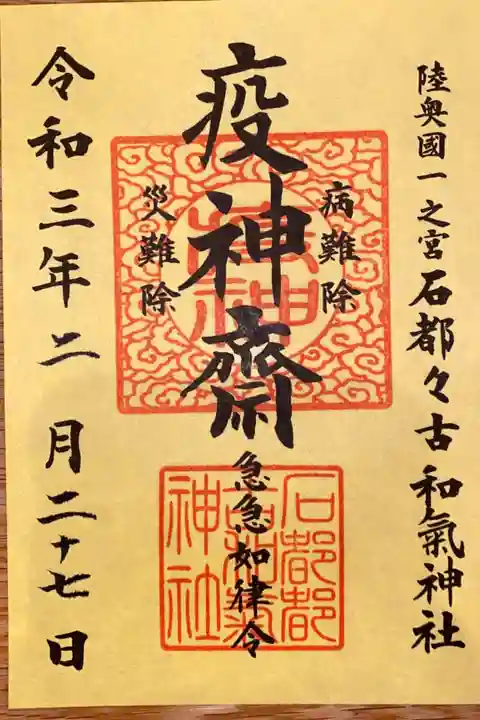 陸奥國一之宮石都々古和氣神社
病難除
疫神齋
災難除
急急如律令
令和三年二月二十七日
疫神
石都都
古和氣
神社